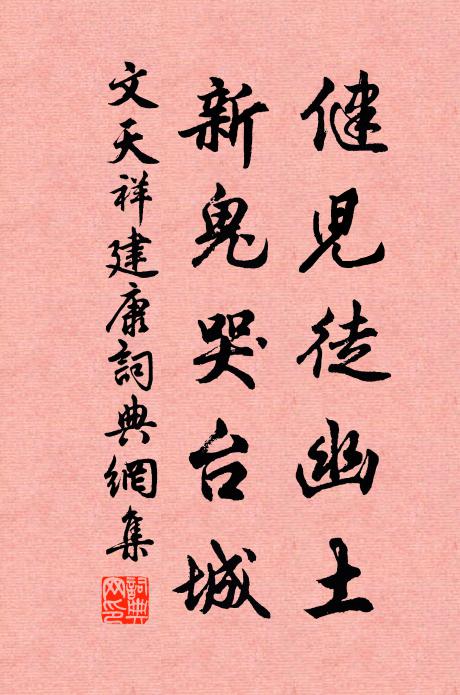 健児徒幽土
新鬼哭台城
文天祥建康詞典網集
詞典網印